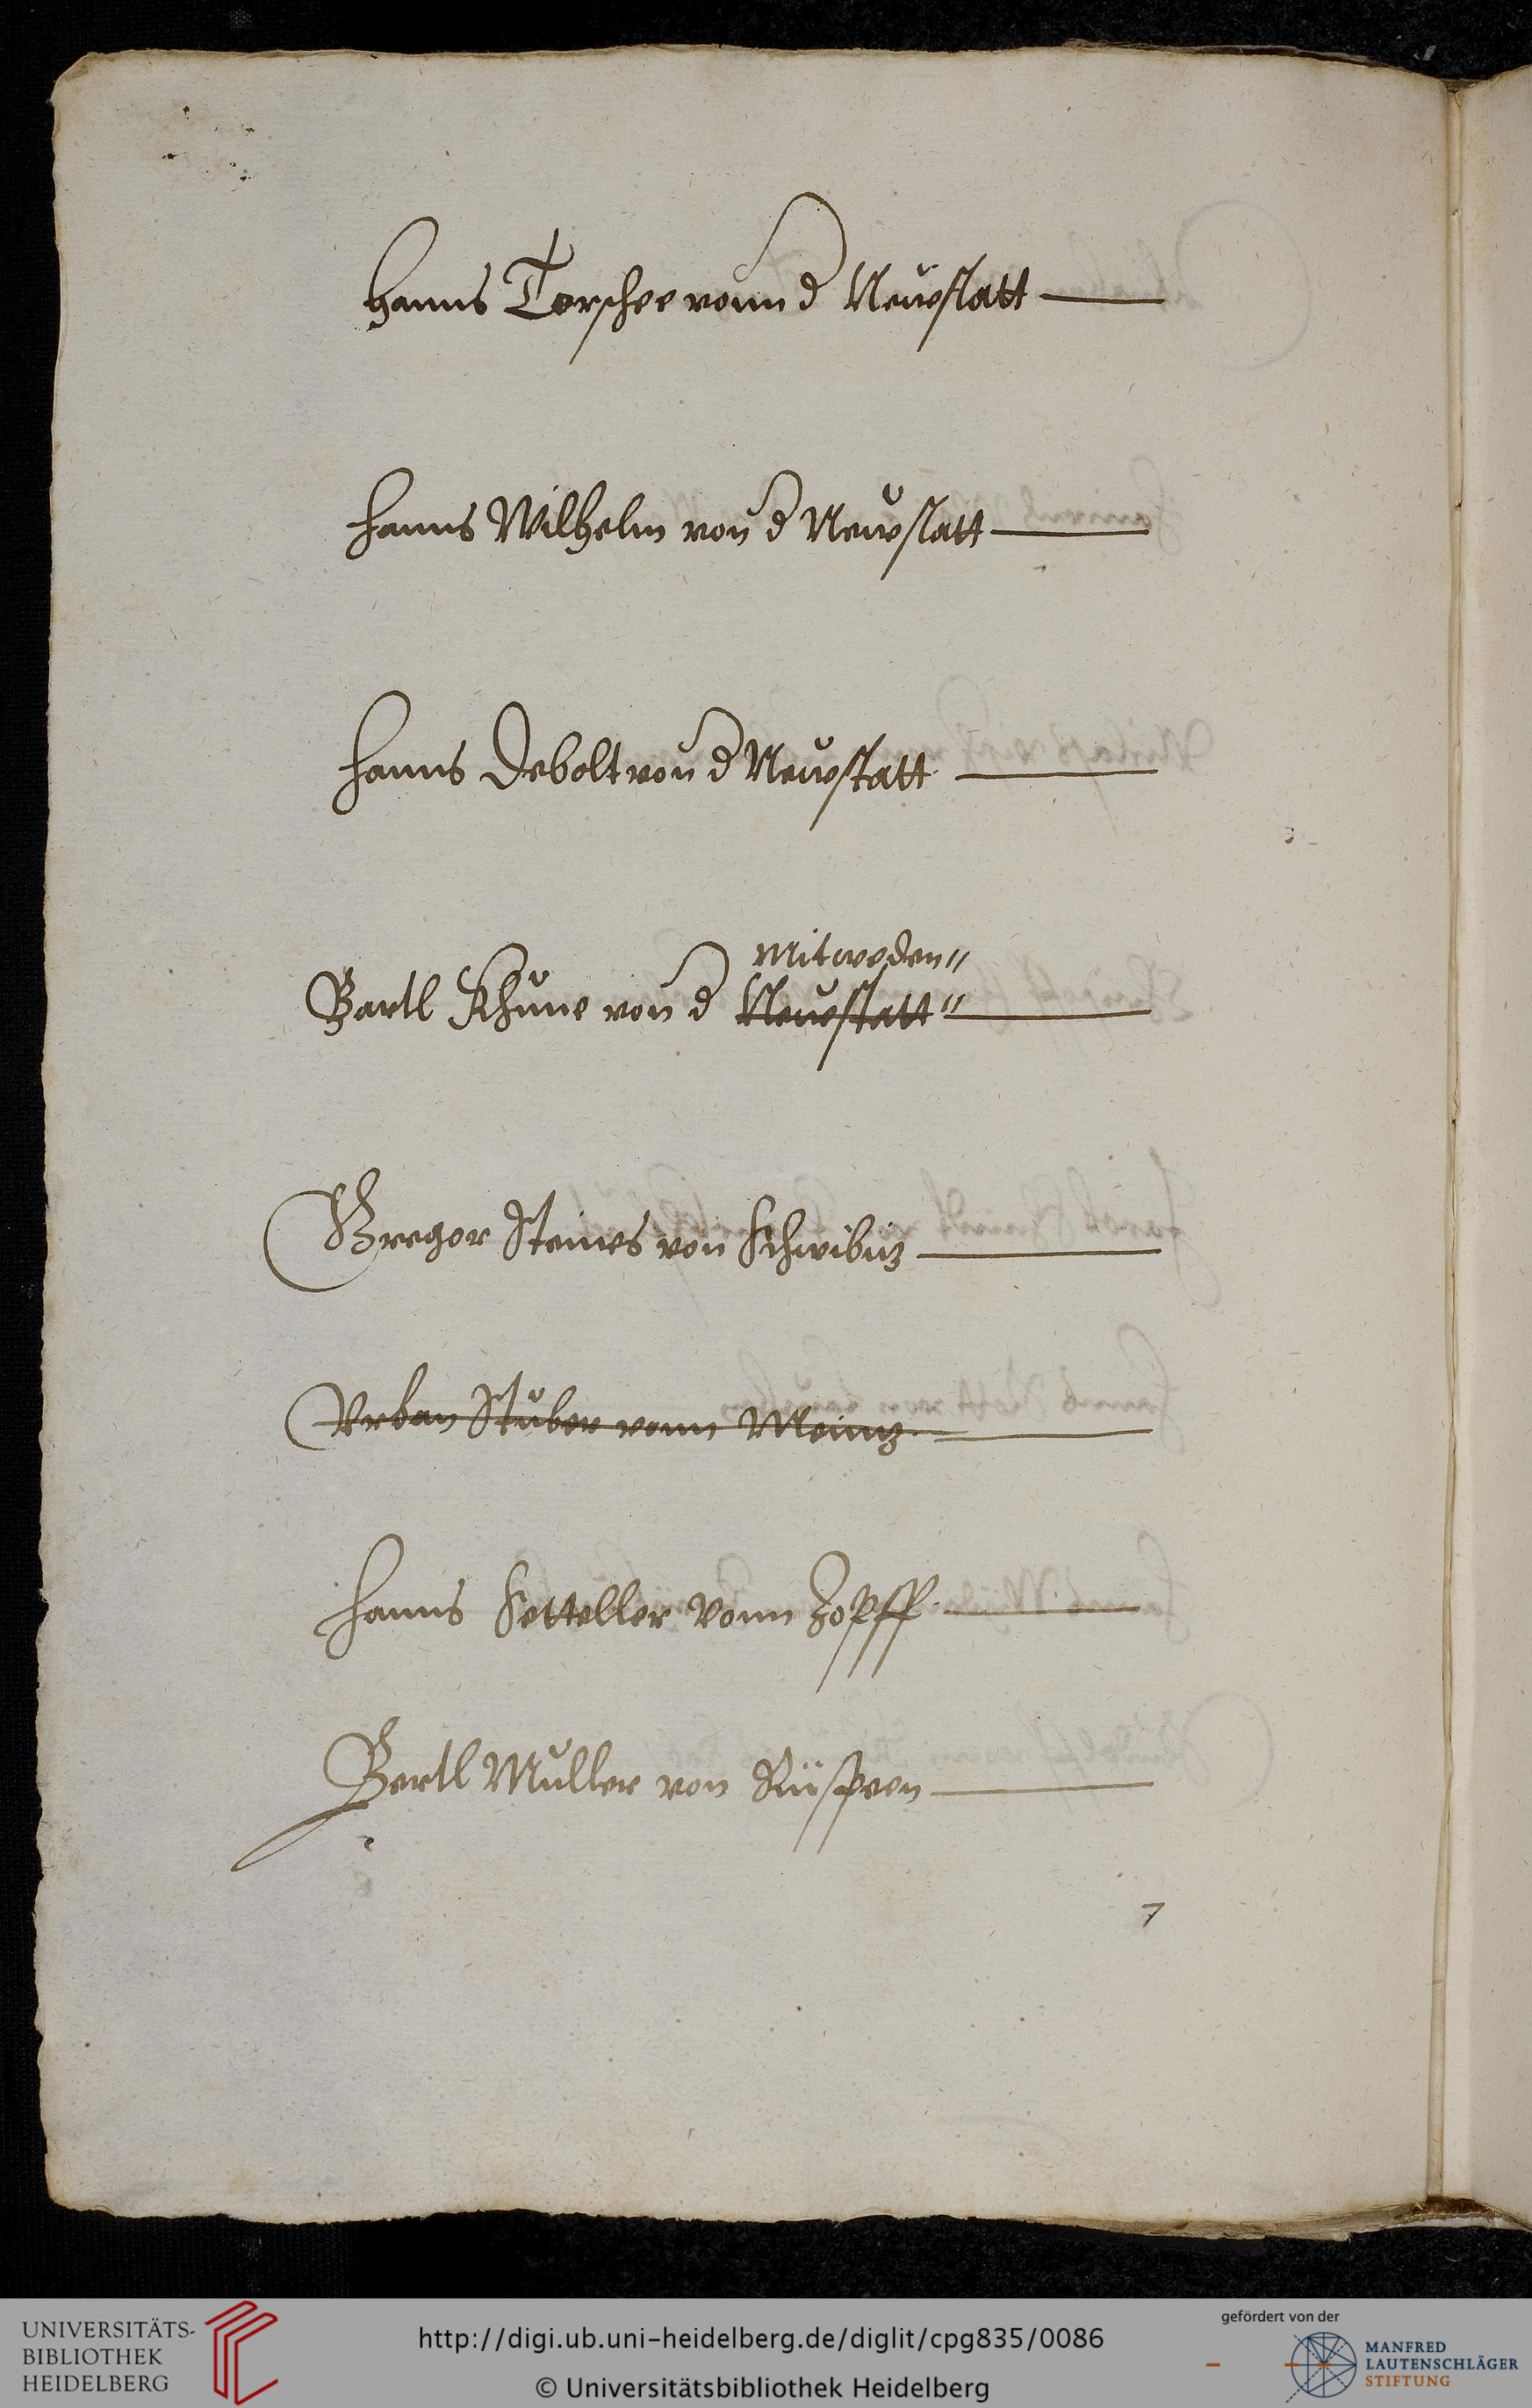 Hanns Torschee vonn d Neuwstatt
Hanns Wilhelm von d Neuwstatt
Hanns Debolt von d Neuwstatt
Mitweden
Bartl Khune von d Neuwstatt
Gregor Steines von Schwibuz
Vrban Stuber vonn Meinz
Hanns Setteller Vonn Zopff
Bertl Muller von
7
UNIVERSITÄTS-
BIBLIOTHEK
HEIDELBERG
http://digi.ub.uni-heidelberg.de/diglit/cpg835/0086
© Universitätsbibliothek Heidelberg
gefördert von der
MANFRED
LAUTENSCHLÄGER
STIFTUNG